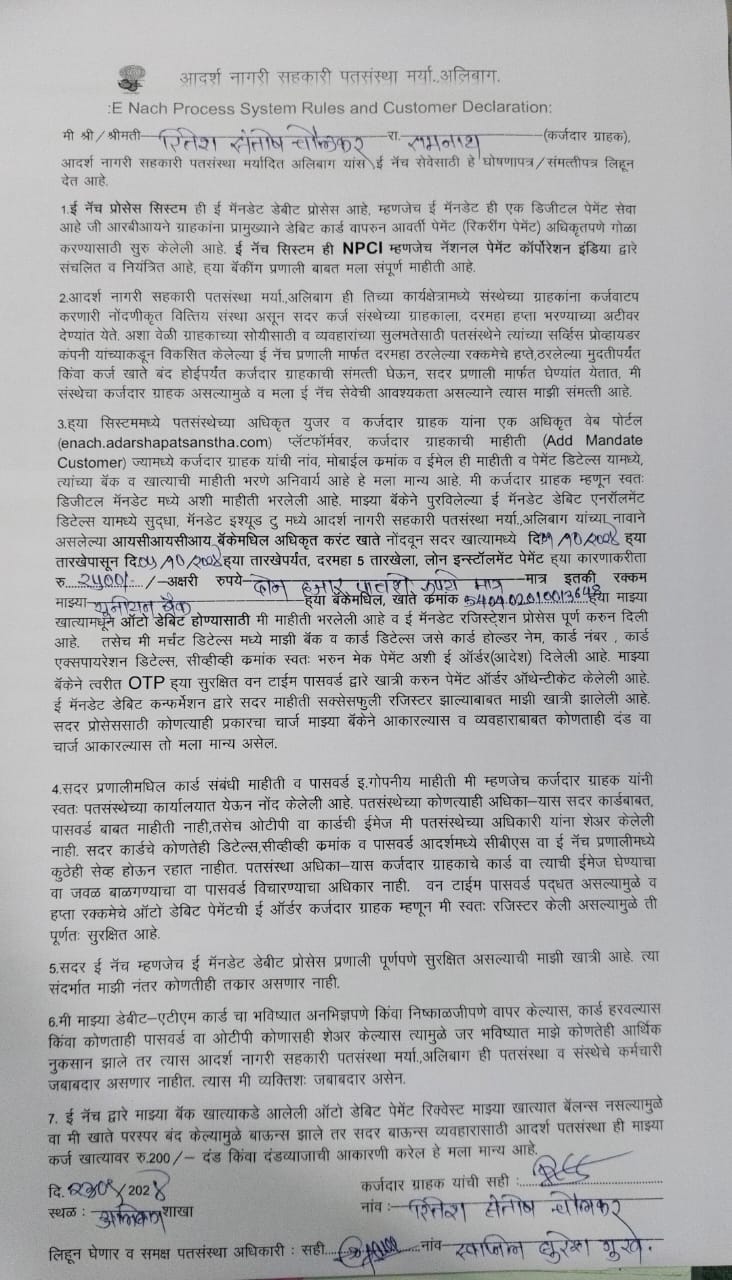 आदर्श नागरी सहकारी पतसंस्था मर्या.,अलिबाग.
:E Nach Process System Rules and Customer Declaration:
मी श्री/श्रीमती रितेश संतोष चौलकर रा. (कर्जदार ग्राहक),
आदर्श नागरी सहकारी पतसंस्था मर्यादित अलिबाग यांसे ई नॅच सेवेसाठी हे घोषणापत्र/संमत्तीपत्र लिहून
देत आहे.
1.ई नॅच प्रोसेस सिस्टम ही ई मॅनडेट डेबीट प्रोसेस आहे, म्हणजेच ई मॅनडेट ही एक डिजीटल पेमेंट सेवा
आहे जी आरबीआयने ग्राहकांना प्रामुख्याने डेबिट कार्ड वापरुन आवर्ती पेमेंट (रिकरींग पेमेंट) अधिकृतपणे गोळा
करण्यासाठी सुरु केलेली आहे. ई नॅच सिस्टम ही NPCI म्हणजेच नॅशनल पेमेंट कॉर्पोरेशन इंडिया द्वारे
संचलित व नियंत्रित आहे, ह्या बॅकींग प्रणाली बाबत मला संपूर्ण माहीती आहे.
2.आदर्श नागरी सहकारी पतसंस्था मर्या.,अलिबाग ही तिच्या कार्यक्षेत्रामध्ये संस्थेच्या ग्राहकांना कर्जवाटप
करणारी नोंदणीकृत वित्तिय संस्था असून सदर कर्ज संस्थेच्या ग्राहकाला, दरमहा हप्ता भरण्याच्या अटीवर
देण्यांत येते. अशा वेळी ग्राहकाच्या सोयीसाठी व व्यवहारांच्या सुलभतेसाठी पतसंस्थेने त्यांच्या सर्व्हिस प्रोव्हायडर
कंपनी यांच्याकडून विकसित केलेल्या ई नॅच प्रणाली मार्फत दरमहा ठरलेल्या रक्कमेचे हप्ते,ठरलेल्या मुदतीपर्यंत
किंवा कर्ज खाते बंद होईपर्यंत कर्जदार ग्राहकाची संमत्ती घेऊन, सदर प्रणाली मार्फत घेण्यांत येतात, मी
संस्थेचा कर्जदार ग्राहक असल्यामुळे व मला ई नॅच सेवेची आवश्यकता असल्याने त्यास माझी संमत्ती आहे.
3.ह्या सिस्टममध्ये पतसंस्थेच्या अधिकृत युजर व कर्जदार ग्राहक यांना एक अधिकृत वेब पोर्टल
(enach.adarshapatsanstha.com) प्लॅटफॉर्मवर, कर्जदार ग्राहकाची माहीती (Add Mandate
Customer) ज्यामध्ये कर्जदार ग्राहक यांची नांव, मोबाईल क्रमांक व ईमेल ही माहीती व पेमेंट डिटेल्स यामध्ये,
त्यांच्या बॅक व खात्याची माहीती भरणे अनिवार्य आहे हे मला मान्य आहे. मी कर्जदार ग्राहक म्हणून स्वतः
डिजीटल मॅनडेट मध्ये अशी माहीती भरलेली आहे. माझ्या बॅकेने पुरविलेल्या ई मॅनडेट डेबिट एनरॉलमेंट
डिटेल्स यामध्ये सुद्धा, मॅनडेट इश्यूड टु मध्ये आदर्श नागरी सहकारी पतसंस्था मर्या.,अलिबाग यांच्या नावाने
असलेल्या आयसीआयसीआय बॅकेमधिल अधिकृत करंट खाते नोंदवून सदर खात्यामध्ये दि. ह्या
तारखेपासून दि. ह्या तारखेपर्यंत, दरमहा 5 तारखेला, लोन इन्स्टॉलमेंट पेमेंट ह्या कारणाकरीता
रु. २५००/-अक्षरी रुपये दोन हजार पाचशे रुपये मात्र मात्र इतकी रक्कम
माझ्या युनीयन बँक ह्या बॅकेमधिल, खाते क्रमांक ह्या माझ्या
खात्यामधून ऑटो डेबिट होण्यासाठी मी माहीती भरलेली आहे व ई मॅनडेट रजिस्ट्रेशन प्रोसेस पूर्ण करुन दिली
आहे. तसेच मी मर्चंट डिटेल्स मध्ये माझी बॅक व कार्ड डिटेल्स जसे कार्ड होल्डर नेम, कार्ड नंबर , कार्ड
एक्सपायरेशन डिटेल्स, सीव्हीव्ही क्रमांक स्वतः भरुन मेक पेमेंट अशी ई ऑर्डर(आदेश) दिलेली आहे. माझ्या
बॅकेने त्वरीत OTP ह्या सुरक्षित वन टाईम पासवर्ड द्वारे खात्री करुन पेमेंट ऑर्डर ऑथेन्टीकेट केलेली आहे.
ई मॅनडेट डेबिट कन्फर्मेशन द्वारे सदर माहीती सक्सेसफुली रजिस्टर झाल्याबाबत माझी खात्री झालेली आहे.
सदर प्रोसेससाठी कोणत्याही प्रकारचा चार्ज माझ्या बॅकेने आकारल्यास व व्यवहाराबाबत कोणताही दंड वा
चार्ज आकारल्यास तो मला मान्य असेल.
4.सदर प्रणालीमधिल कार्ड संबंधी माहीती व पासवर्ड इ.गोपनीय माहीती मी म्हणजेच कर्जदार ग्राहक यांनी
स्वतः पतसंस्थेच्या कार्यालयात येऊन नोंद केलेली आहे. पतसंस्थेच्या कोणत्याही अधिका-यास सदर कार्डबाबत,
पासवर्ड बाबत माहीती नाही,तसेच ओटीपी वा कार्डची ईमेज मी पतसंस्थेच्या अधिकारी यांना शेअर केलेली
नाही. सदर कार्डचे कोणतेही डिटेल्स,सीव्हीव्ही क्रमांक व पासवर्ड आदर्शमध्ये सीबीएस वा ई नॅच प्रणालीमध्ये
कुठेही सेव्ह होऊन रहात नाहीत. पतसंस्था अधिका-यास कर्जदार ग्राहकाचे कार्ड वा त्याची ईमेज घेण्याचा
वा जवळ बाळगण्याचा वा पासवर्ड विचारण्याचा अधिकार नाही. वन टाईम पासवर्ड पद्धत असल्यामुळे व
हप्ता रक्कमेचे ऑटो डेबिट पेमेंटची ई ऑर्डर कर्जदार ग्राहक म्हणून मी स्वतः रजिस्टर केली असल्यामुळे ती
पूर्णतः सुरक्षित आहे.
5.सदर ई नॅच म्हणजेच ई मॅनडेट डेबीट प्रोसेस प्रणाली पूर्णपणे सुरक्षित असल्याची माझी खात्री आहे. त्या
संदर्भात माझी नंतर कोणतीही तक्रार असणार नाही.
6.मी माझ्या डेबीट-एटीएम कार्ड चा भविष्यात अनभिज्ञपणे किंवा निष्काळजीपणे वापर केल्यास, कार्ड हरवल्यास
किंवा कोणताही पासवर्ड वा ओटीपी कोणासही शेअर केल्यास त्यामुळे जर भविष्यात माझे कोणतेही आर्थिक
नुकसान झाले तर त्यास आदर्श नागरी सहकारी पतसंस्था मर्या.,अलिबाग ही पतसंस्था व संस्थेचे कर्मचारी
जबाबदार असणार नाहीत. त्यास मी व्यक्तिशः जबाबदार असेन.
7. ई नॅच द्वारे माझ्या बॅक खात्याकडे आलेली ऑटो डेबिट पेमेंट रिक्वेस्ट माझ्या खात्यात बॅलन्स नसल्यामुळे
वा मी खाते परस्पर बंद केल्यामुळे बाऊन्स झाले तर सदर बाऊन्स व्यवहारासाठी आदर्श पतसंस्था ही माझ्या
कर्ज खात्यावर रु.200/- दंड किंवा दंडव्याजाची आकारणी करेल हे मला मान्य आहे.
दि. /202 कर्जदार ग्राहक यांची सही :
स्थळ : शाखा नांव : रितेश संतोष चौलकर
लिहून घेणार व समक्ष पतसंस्था अधिकारी : सही नांव